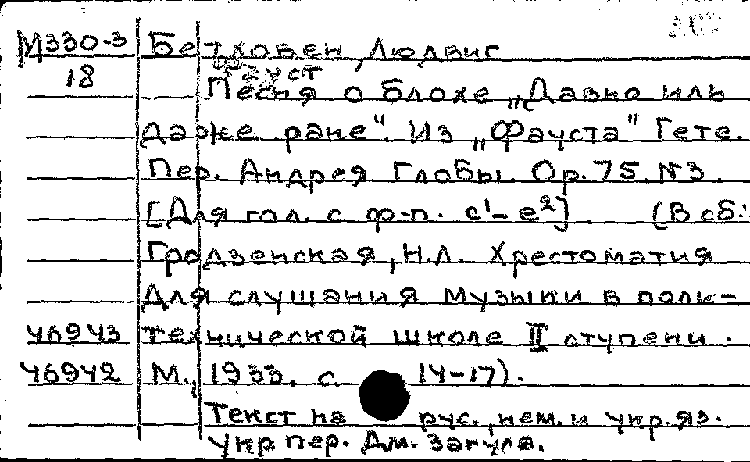 М330-3 Бетховен, Людвиг
18 Фауст
Песня о блохе „Давно иль
даже ране". Из „Фауста" Гете.
Пер. Андрея Глобы. Op. 75. N3.
[Для гол. с ф-п. c¹-e²]. (В сб.:
Гродзенская, Н.Л. Хрестоматия
для слушания музыки в поли-
46943 технической школе II ступени.
46942 М., 1933. с. 14-17).
Текст на рус., нем. и укр. яз.
Укр пер. Дм. Закула.